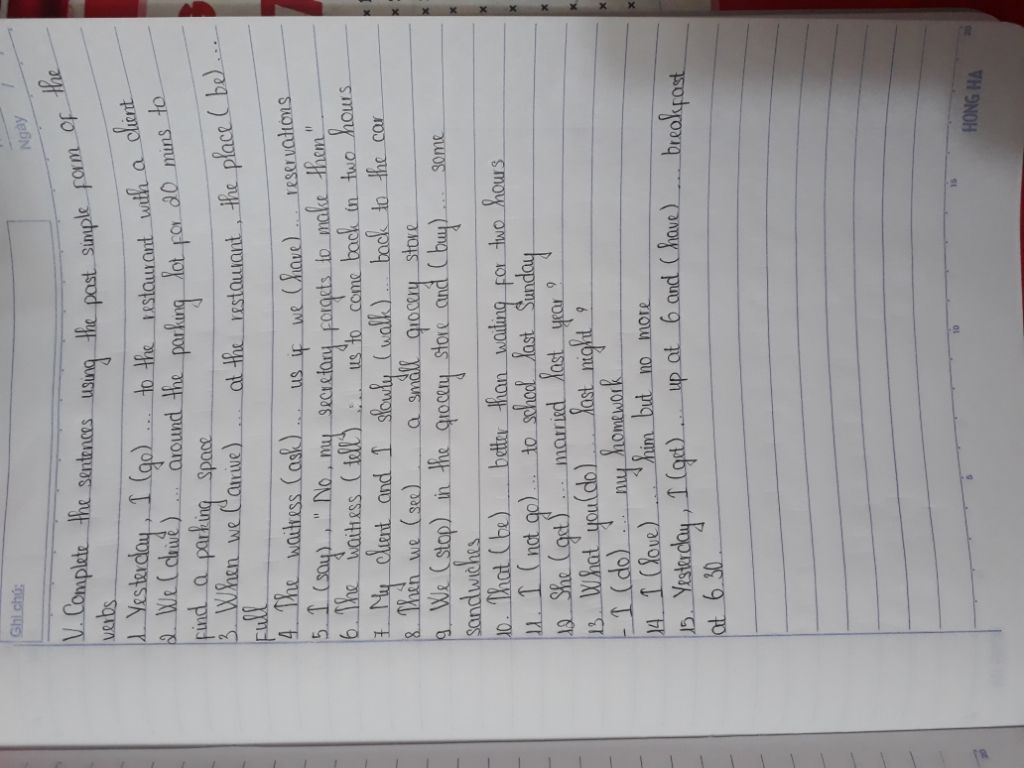 Ghi chú:
Ngày / /
V. Complete the sentences using the past simple form of the
verbs
1 Yesterday, I (go) .... to the restaurant with a client
2 We (drive) .... around the parking lot for 20 mins to
find a parking space
3. When we (arrive) .... at the restaurant, the place (be) ...
full
4 The waitress (ask) .... us if we (have) .... reservations
5 I (say), "No, my secretary forgets to make them"
6. The waitress (tell) .... us to come back in two hours
7 My client and I slowly (walk) ... back to the car
8. Then we (see) .... a small grocery store
9. We (stop) in the grocery store and (buy) ... some
sandwiches
10. That (be) ... better than waiting for two hours
11. I (not go) ... to school last Sunday
12 She (get) ... married last year?
13. What you (do) .... last night?
- I (do) .... my homework
14 I (love) ... him but no more
15. Yesterday, I (get) ... up at 6 and (have) ... breakfast
at 6.30.
5 10 15 20
HONG HA